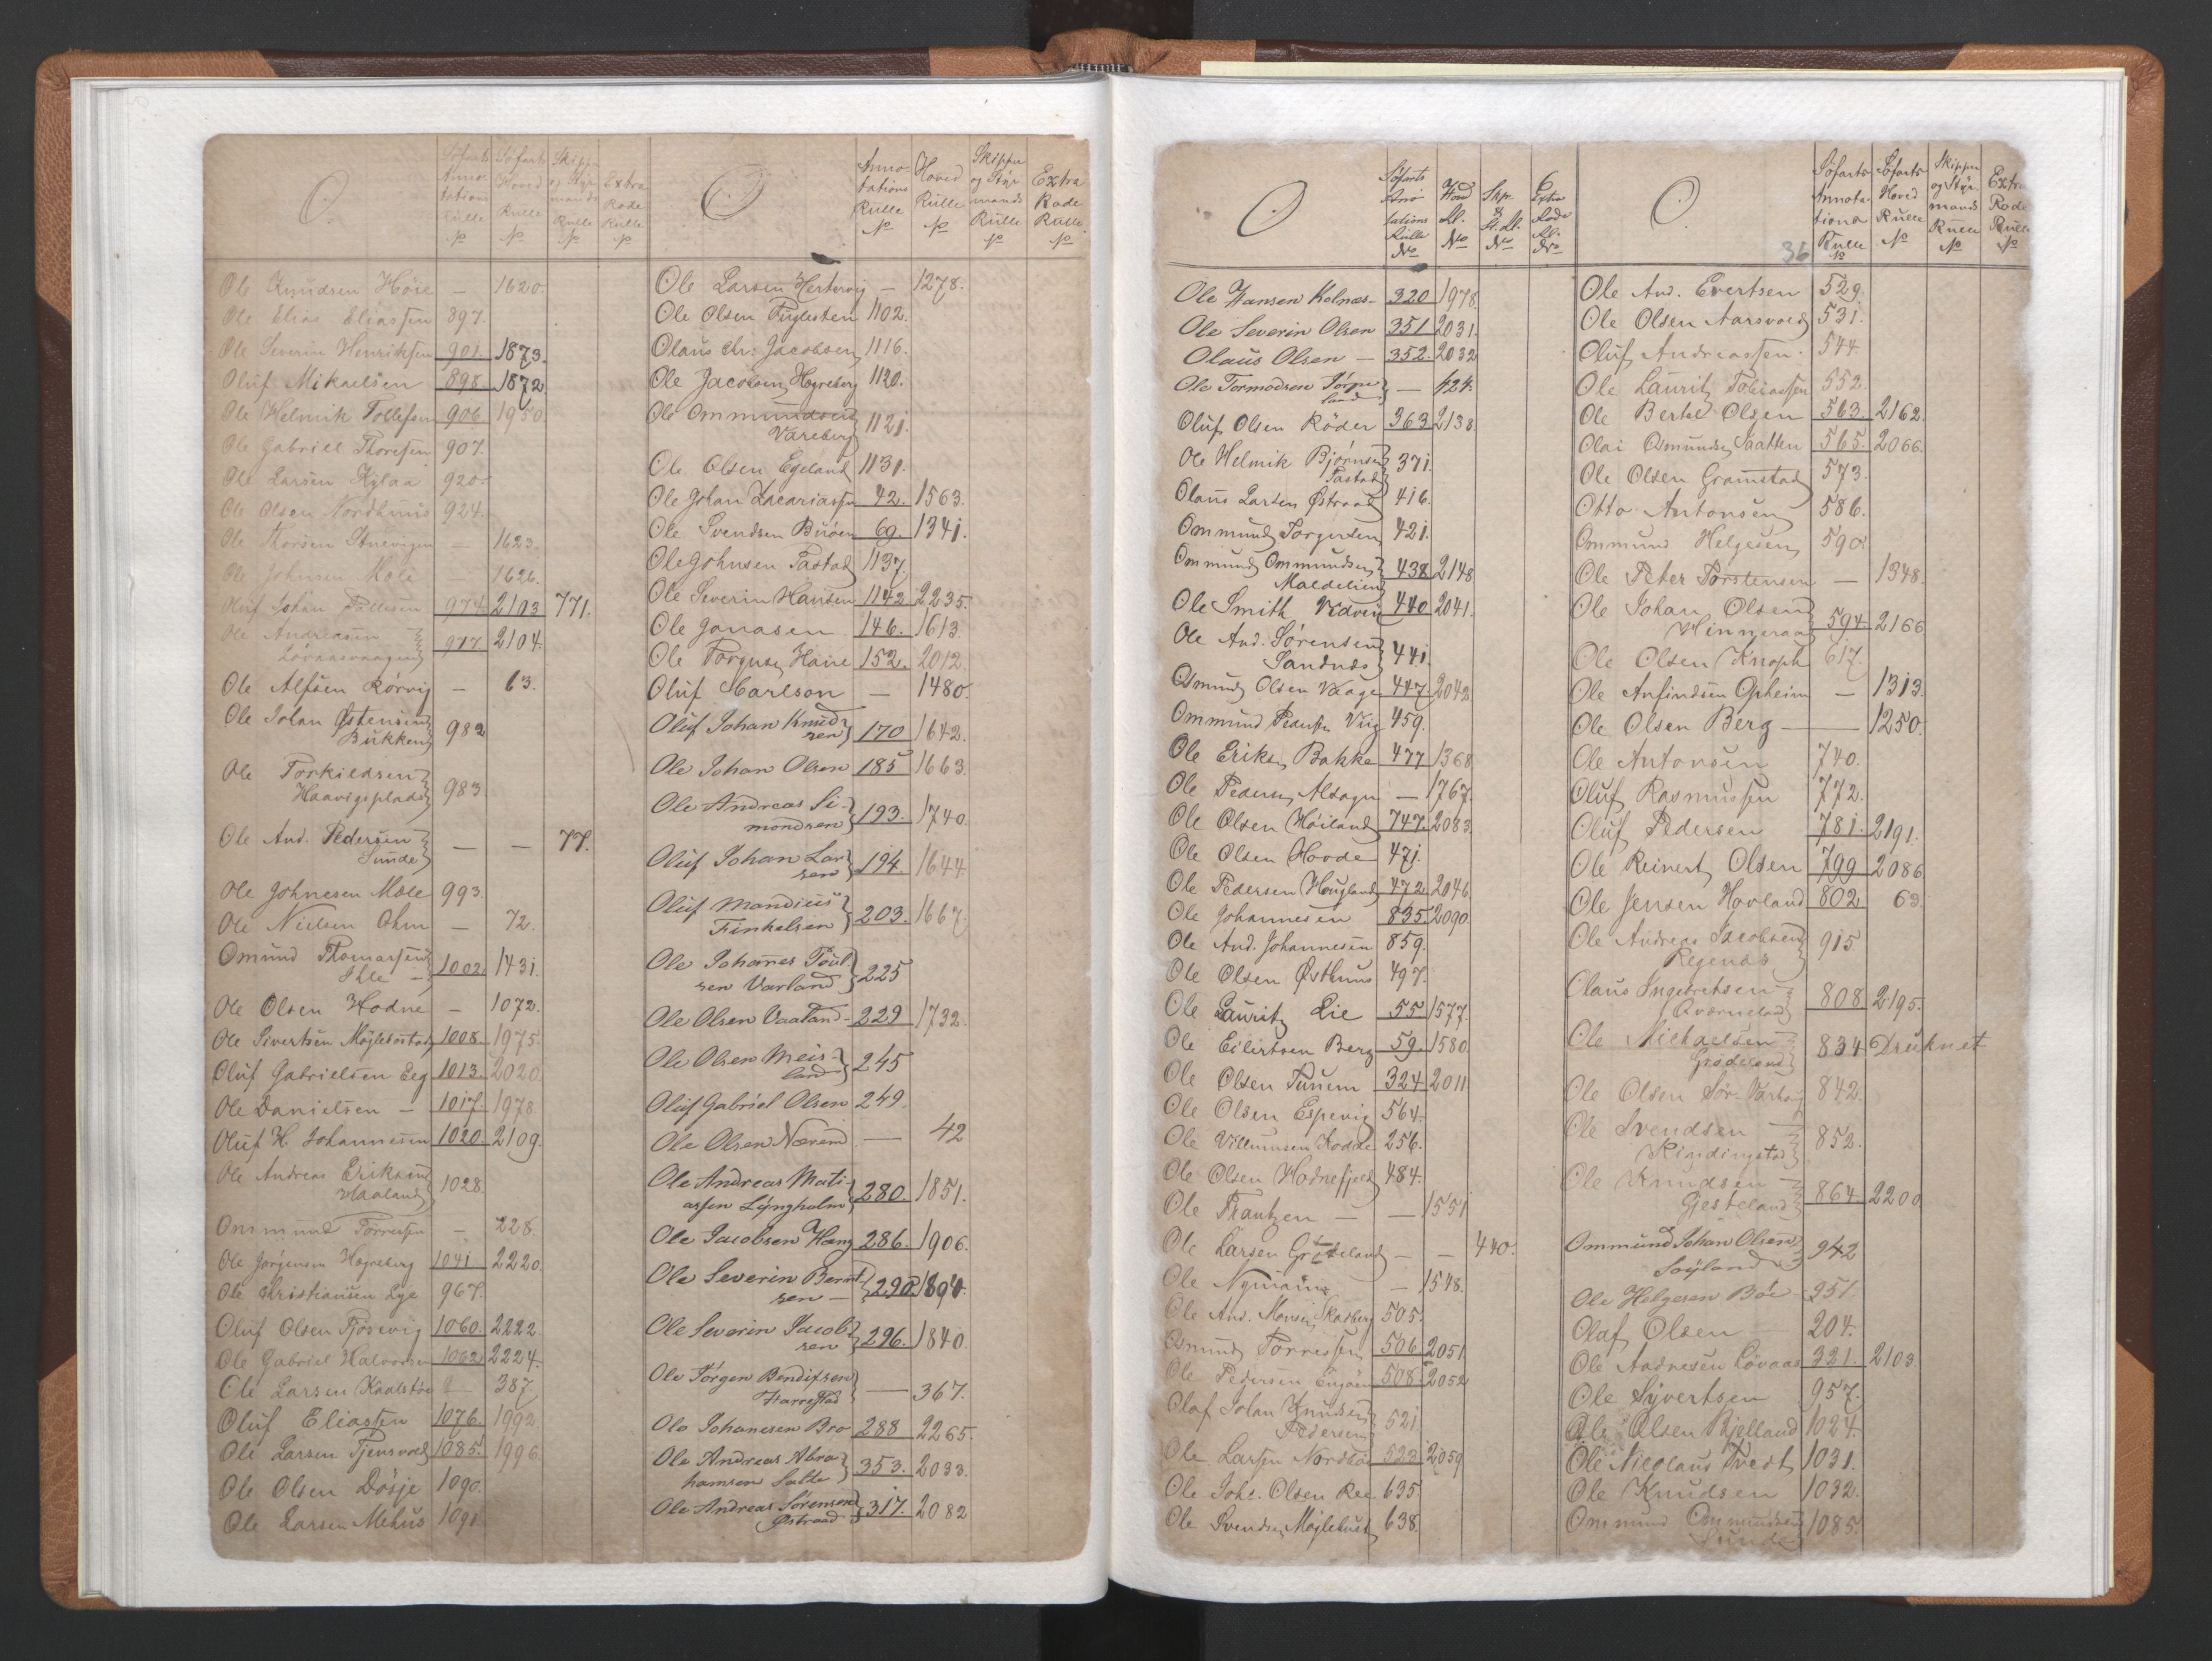 O.
Søfarts Anno- tations Rulle №
Søfarts Hoved Rulle №
Skipper og Styr mands Rulle №
Extra Rode Rulle №
Ole Knudsen Høie — 1620
Ole Elias Eliassen 897.
Ole Severin Henriksen 901. 1873.
Oluf Mikaelsen 898 1872
Ole Helmik Tollefsen 906 1950
Ole Gabriel Thoresen 907.
Ole Larsen Kylaa 920.
Ole Olsen Nordhuus 924.
Ole Thorsen — 1623.
Ole Johnsen Mæle 1626.
Oluf Johan Tollesen 974 2103 771.
Ole Andreasen
977 2104.
Ole Alfsen Rørvig — 63.
Ole Johan Østensen
Bukken 982
Ole Torkildsen
Haavigsplads 983
Ole And. Pedersen
Sunde — — 77.
Ole Johnesen Mæle 993.
Ole Nielsen Ohm — 72.
Omund Thomassen
1002. 1431.
Ole Olsen Hodne — 1072.
Ole Sivertsen Møglebostad 1008. 1975.
Oluf Gabrielsen Eeg 1013. 2020
Ole Danielsen — 1017 1978
Oluf H. Johannesen 1020 2109.
Ole Andreas Eriksen
Haaland 1028
Ommund Torressen — 228.
Ole Jørgensen Høgreberg 1041 2220.
Ole Kristiansen Lye 967.
Oluf Olsen Tjosevig 1060. 2222.
Ole Gabriel Halvorsen 1062 2224.
Ole Larsen Kaalstøe — 387
Oluf Eliassen 1076. 1992.
Ole Larsen Tjensvold 1085. 1996.
Ole Olsen Døsje 1090.
Ole Larsen Mehus 1091
O
Anno- tations Rulle №
Hoved Rulle №
Skipper og Styr mands Rulle №
Extra Rode Rulle №
Ole Larsen Hertervig — 1278.
Ole Olsen Fuglesten 1102.
Olaus Chr. Jacobsen 1116.
Ole Jacobsen Høgreberg 1120.
Ole Ommundsen
Vareberg 1121.
Ole Olsen Egeland 1131.
Ole Johan Zacariassen 42. 1563.
Ole Svendsen Buøen 69. 1341.
Ole Johnsen Tastad 1137.
Ole Severin Hansen 1142 2235.
Ole Jonasen 146. 1613.
Ole Torgersen Haire 152. 2012.
Oluf Carlson — 1480.
Oluf Johan Knud-
sen 170 1642.
Ole Johan Olsen 185 1663.
Ole Andreas Si-
mondsen 193. 1740.
Oluf Johan Lar-
sen 194. 1644.
Oluf Mandius
Finkelsen 203. 1667.
Ole Johanes Poul-
sen Varland 225
Ole Olsen Vaaland — 229 1732.
Ole Olsen Meis-
land 245
Oluf Gabriel Olsen 249.
Ole Olsen Nærem — 42
Ole Andreas Mati-
assen Lyngholm 280 1851.
Ole Jacobsen Haug 286. 1906.
Ole Severin Bernt-
sen — 290 1890.
Ole Severin Jacob-
sen 296. 1840
Ole Jørgen Bendixsen
Harrestad — 367.
Ole Johanesen Bro 288 2265.
Ole Andreas Abra-
hamsen Salte 353. 2033
Ole Andreas Sørensen
Østraad 317. 2082
O
Søfarts Ano tations Rulle №
Hoved Rl. №
Skp. & St. Rl. №
Extra Rode Rl. №
Ole Hansen Kolnæs — 320 1978
Ole Severin Olsen 351 2031
Olaus Olsen — 352. 2032
Ole Tormodsen Tørpe
land — 424.
Oluf Olsen Røder 363 2138
Ole Helmik Bjørnsen
Tastad 371.
Olaus Larsen Østraad 416.
Ommund Torgersen 421.
Ommund Ommundsen
438 2148
Ole Smith Vedvig 440 2041.
Ole And. Sørensen
Sandnæs 441.
Osmund Olsen Vaage 447. 2042
Ommund Pedersen Vig 459.
Ole Eriksen Bakke 477 1368
Ole Pedersen — 1767.
Ole Olsen Høiland 747. 2083
Ole Olsen Hovde 471.
Ole Pedersen Hougland 472 2046
Ole Johannesen 835 2090
Ole And. Johannesen 859.
Ole Olsen Østhuus 497.
Ole Lauritz Lie 55 1577.
Ole Eilertsen Berg 59. 1580
Ole Olsen Tunem 324 2011
Ole Olsen Espevig 564.
Ole Villumsen Kodde 256.
Ole Olsen Hodnefjeld 484.
Ole Frantzen — — 1551
Ole Larsen — — 440.
Ole Nymann — 1548.
Ole And. Monsen Skadberg 505.
Osmund Torressen 506 2051
Ole Pedersen 508. 2052
Olaf Johan Knudsen
Pedersen 521
Ole Larsen Nordbø 523 2059
Ole Johs. Olsen Ree 635
Ole Svendsen Møglebust 638.
O.
36
Søfarts Annota- tions Rulle №
Søfarts Hoved Rulle №
Skipper og Styr mands Rulle №
Extra Rode Rulle №
Ole And. Evertsen 529.
Ole Olsen Aarsvold 531.
Oluf Andreassen 544
Ole Lauritz Tobiassen 552.
Ole Bertel Olsen 563. 2162.
Olai Osmundsen Saatten 565. 2066.
Ole Olsen Gramstad 573.
Otto Antonsen 586.
Ommund Helgesen 590.
Ole Peter Torstensen — 1348.
Ole Johan Olsen
Hinneraa 594. 2166
Ole Olsen Knoph 617.
Ole Anfindsen Opheim — 1313.
Ole Olsen Berg — — 1250.
Ole Antonsen 740.
Oluf Rasmussen 772.
Oluf Pedersen 781. 2191.
Ole Reinert Olsen 799 2086
Ole Jensen Hovland 802 63.
Ole Andreas Jacobsen
Regenæs 915
Olaus Ingebretsen
Qværneland 808 2195.
Ole Michaelsen
Grødeland 834 Druknet
Ole Olsen Sør-Varhoug 842.
Ole Svendsen
Ringdingstad 852.
Ole Knudsen
Gjesteland 864. 2200
Ommund Johan Olsen
Søyland 942
Ole Helgesen Bøe 251.
Olaf Olsen 204.
Ole Andresen Løvaas 321. 2103
Ole Syvertsen 957.
Ole Olsen Bjelland 1024.
Ole Nicolaus Tvedt 1031.
Ole Knudsen 1032.
Ommund Ommundsen
Sunde 1085.